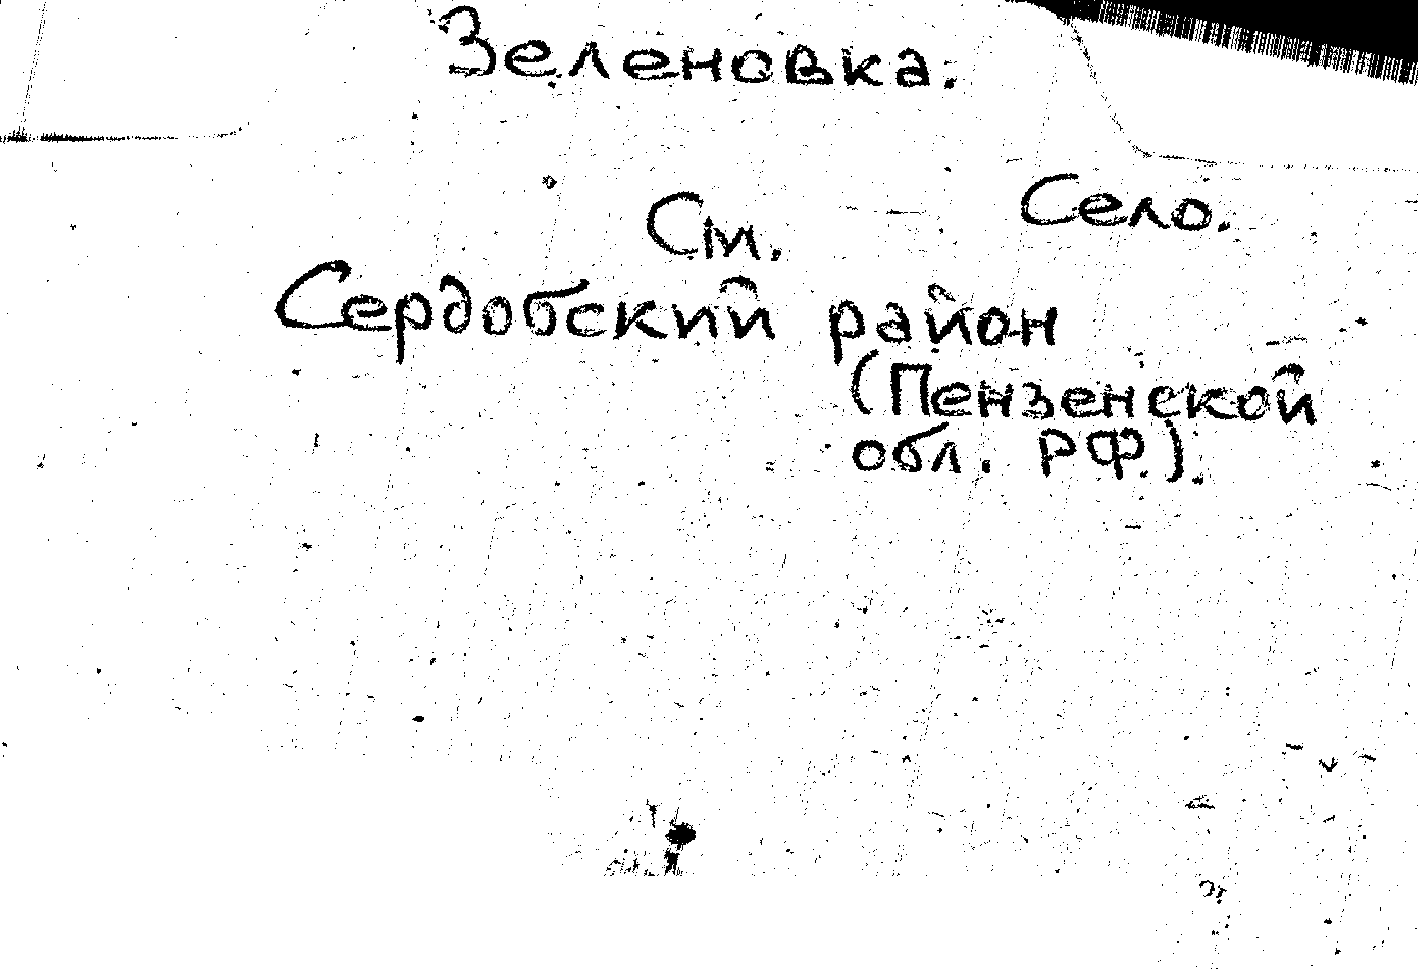 Зеленовка.
Село.
См.
Сердобский район
(Пензенской
обл. РФ).